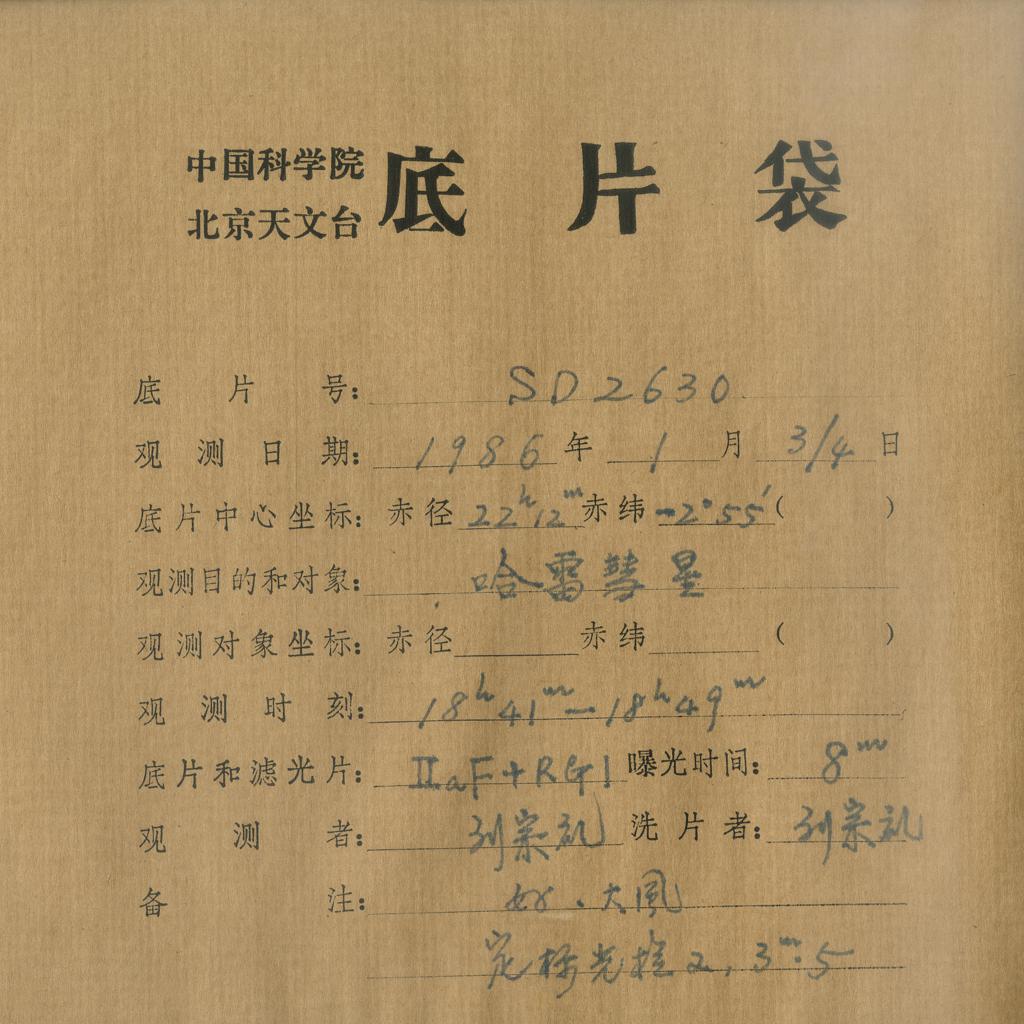 中国科学院
北京天文台
底片袋
底片号: SD2630
观测日期: 1986年 1月 3/4日
底片中心坐标: 赤径 22ʰ12ᵐ 赤纬 -2°55′ ( )
观测目的和对象: 哈雷彗星
观测对象坐标: 赤径 赤纬 ( )
观测时刻: 18ʰ41ᵐ—18ʰ49ᵐ
底片和滤光片: ⅡaF+RG1 曝光时间: 8ᵐ
观测者: 刘宗礼 洗片者: 刘宗礼
备注: 好.大風
定标光楔2, 3ᵐ.5